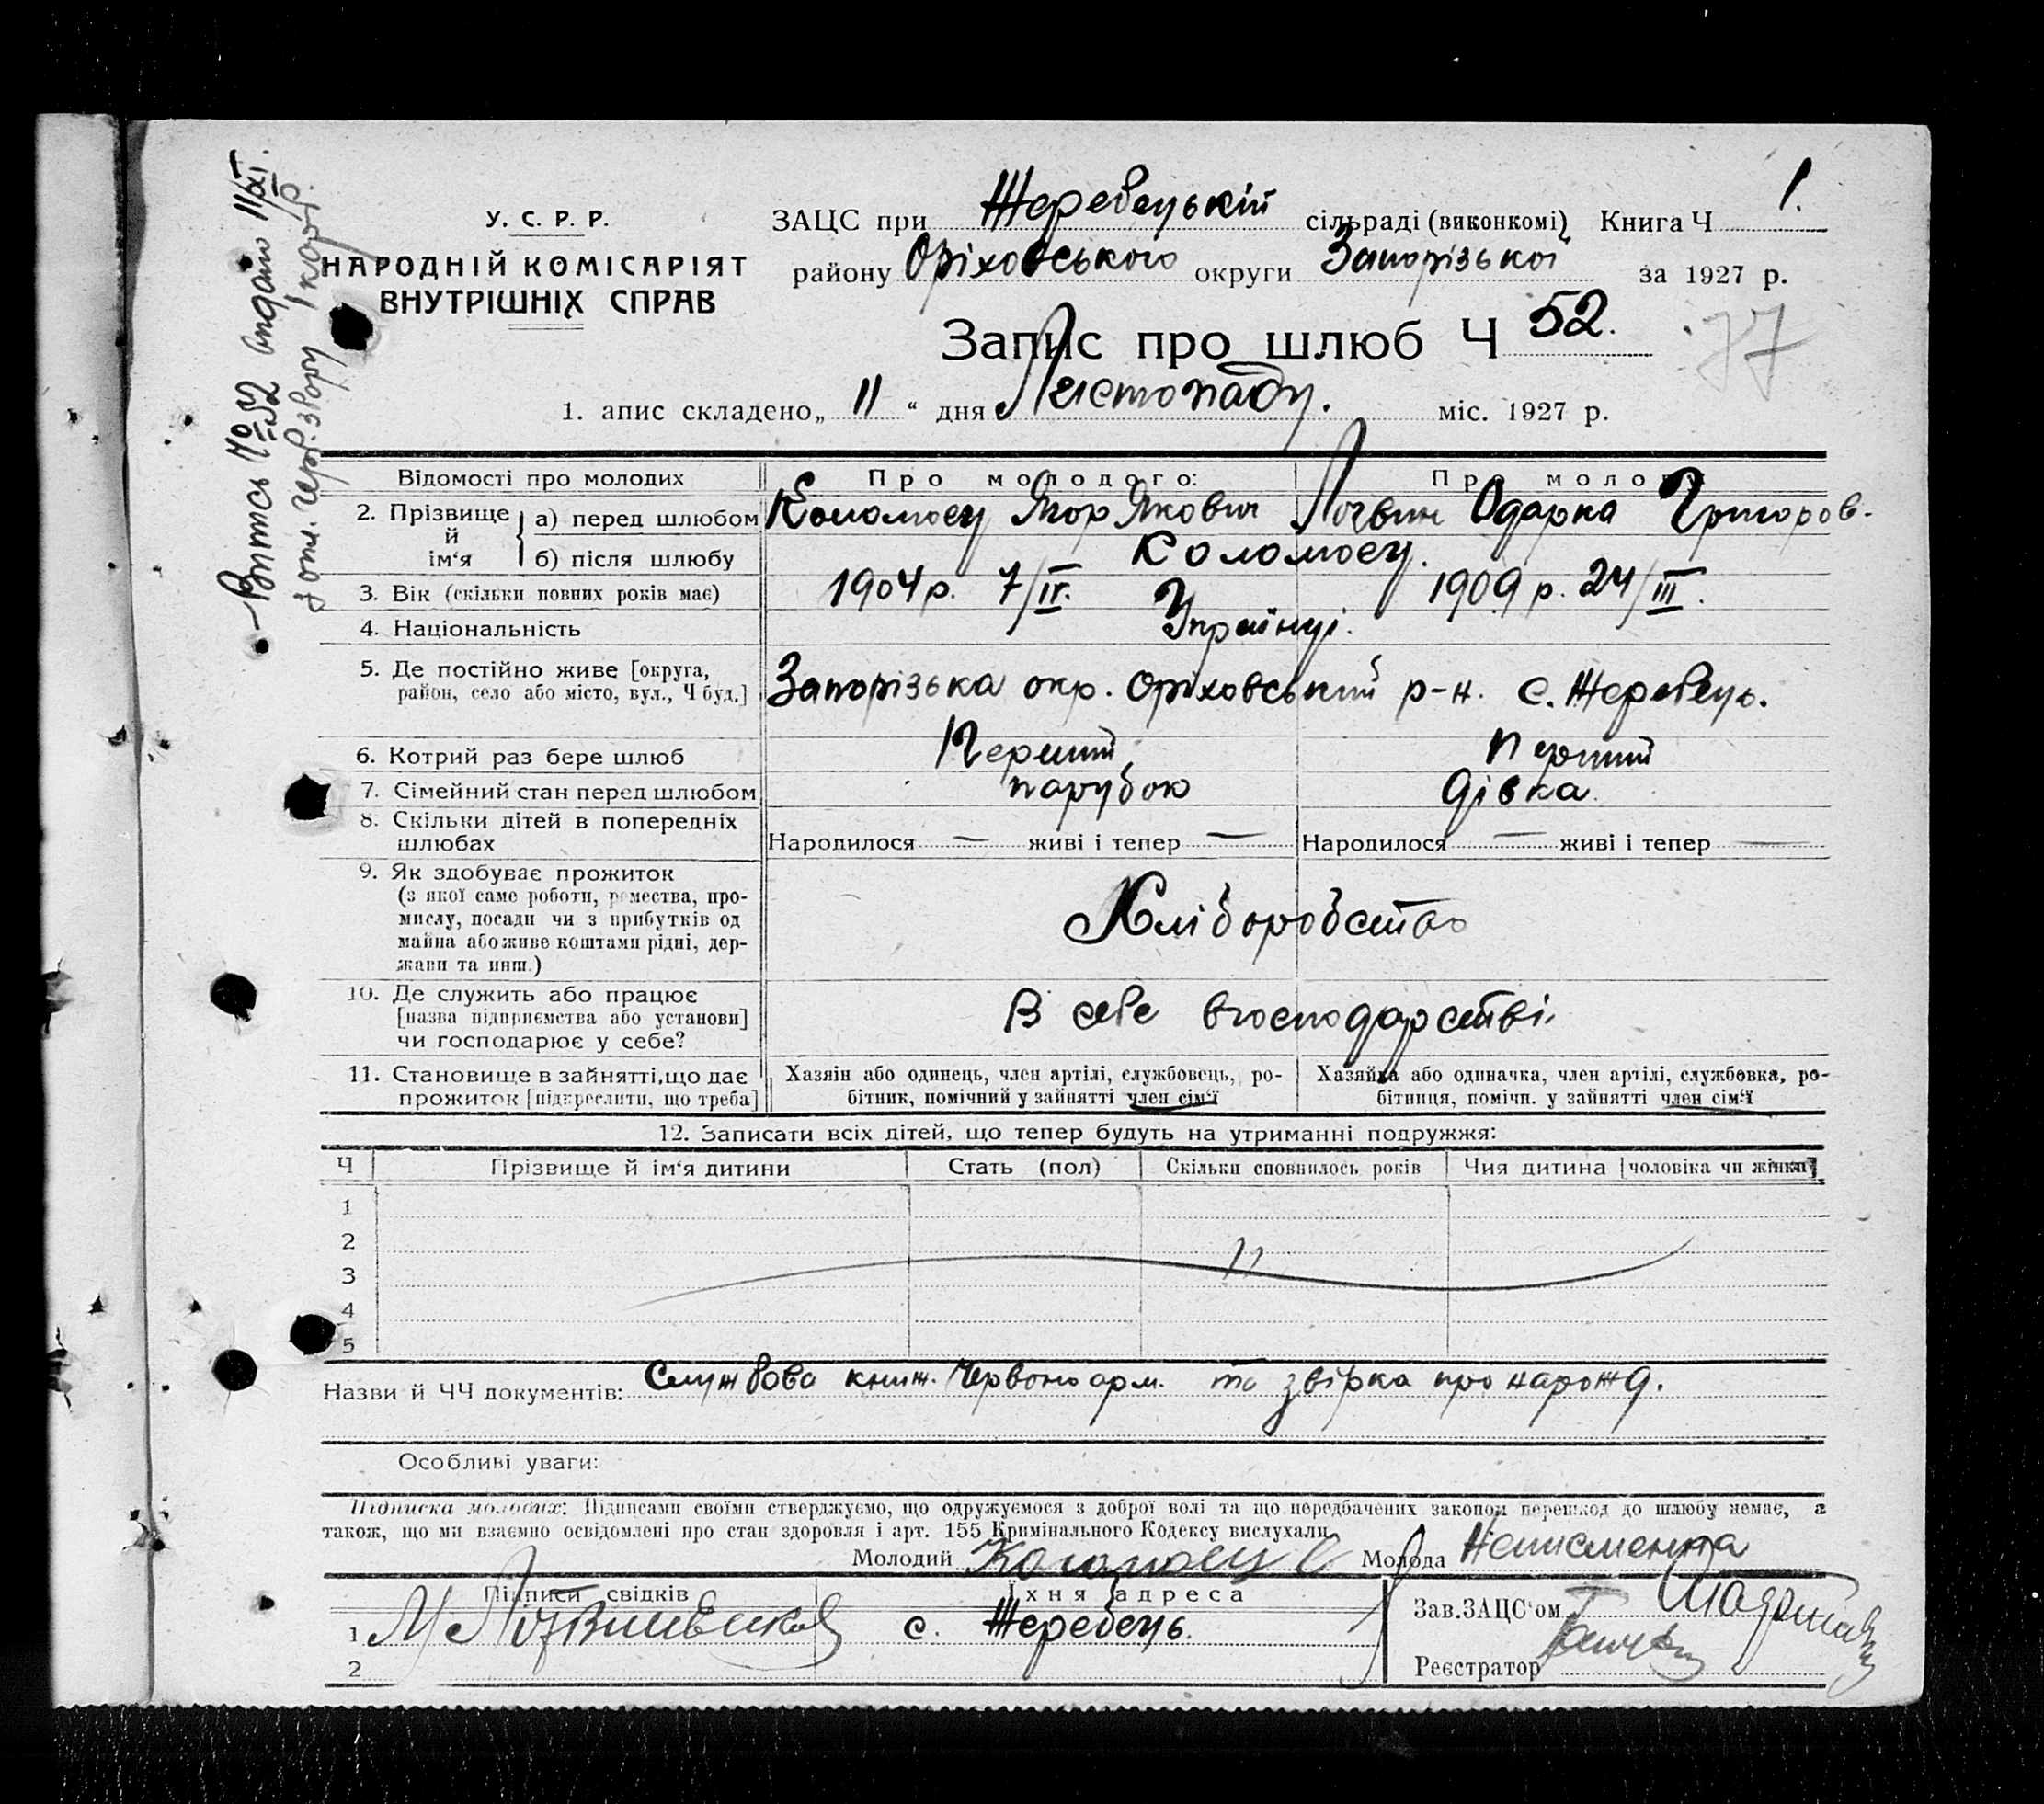 Витсь № 52 видано 11/XI.
У. С. Р. Р.
НАРОДНІЙ КОМІСАРІЯТ
ВНУТРІШНІХ СПРАВ
ЗАЦС при Жеребецькій сільраді (виконкомі) Книга Ч 1.
району Оріховського округи Запорізької за 1927 р.
Запис про шлюб Ч 52.
77
1. апис складено „ 11 “ дня Листопаду. міс. 1927 р.
Відомості про молодих
Про молодого:
Про моло
2. Прізвище й ім‘я
а) перед шлюбом Коломоец Ягор Якович Логвин Одарка Григоров.
б) після шлюбу Коломоец.
3. Вік (скільки повних років має) 1904 р. 7/IV. 1909 р. 24/III.
4. Національність Українці.
5. Де постійно живе [округа,
район, село або місто, вул., Ч буд.] Запорізька окр. Оріховський р-н. с. Жеребець.
6. Котрий раз бере шлюб Перший Перший
7. Сімейний стан перед шлюбом парубок дівка.
8. Скільки дітей в попередніх
шлюбах Народилося — живі і тепер — Народилося — живі і тепер —
9. Як здобуває прожиток
(з якої саме роботи, ремества, про-
мислу, посади чи з прибутків од
майна або живе коштами рідні, дер-
жави та инш.) Хліборобство
10. Де служить або працює
[назва підприємства або установи]
чи господарює у себе? В себе вгосподарстві.
11. Становище в зайнятті, що дає
прожиток [підкреслити, що треба]
Хазяін або одинець, член артілі, службовець, ро-
бітник, помічний у зайнятті член сім‘ї
Хазяйка або одиначка, член артілі, службовка, ро-
бітниця, помічн. у зайнятті член сім‘ї
12. Записати всіх дітей, що тепер будуть на утриманні подружжя:
Ч Прізвище й ім‘я дитини Стать (пол) Скільки сповнилось років Чия дитина [чоловіка чи жінки]
1
2
3
4
5
Назви й ЧЧ документів: Службова книж. Червоноарм. та звірка про нарожд.
Особливі уваги:
Підписка молодих: Підписами своїми стверджуємо, що одружуємося з доброї волі та що передбачених законом перешкод до шлюбу немає, а
також, що ми взаємно освідомлені про стан здоровля і арт. 155 Кримінального Кодексу вислухали.
Молодий Коломоец Молода Неписменна
Підписи свідків Їхня адреса
1 с. Жеребець.
2
Зав. ЗАЦС‘ом
Реєстратор